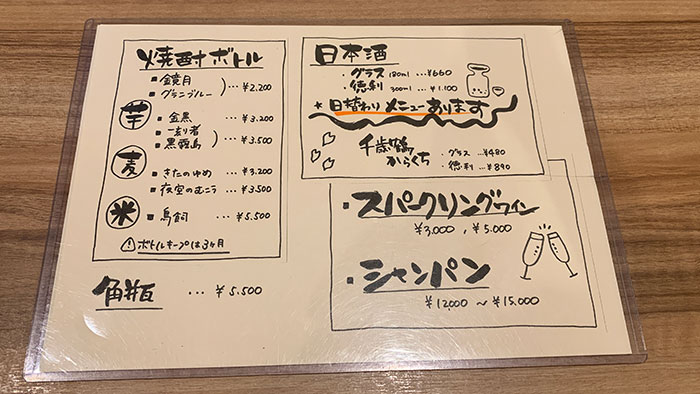 焼酎ボトル
▪鏡月
▪グランブルー )…¥2.200
芋 ▪金黒 …¥3.200
▪一刻者
▪黒霧島 )…¥3.500
麦 ▪きたのゆめ …¥3.200
▪夜空のむこう …¥3.500
米 ▪鳥飼 …¥5.500
ボトルキープは3ヶ月
角瓶 … ¥5,500
日本酒
・グラス 180ml …¥660
・徳利 300ml …¥1.100
*日替わりメニューあります
千歳鶴
からくち
・グラス …¥480
・徳利 …¥890
▪スパークリングワイン
¥3,000 , ¥5,000
▪シャンパン
¥12,000 〜 ¥15,000